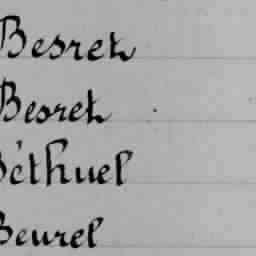 Besret
Besret
Béthuel
Beurel